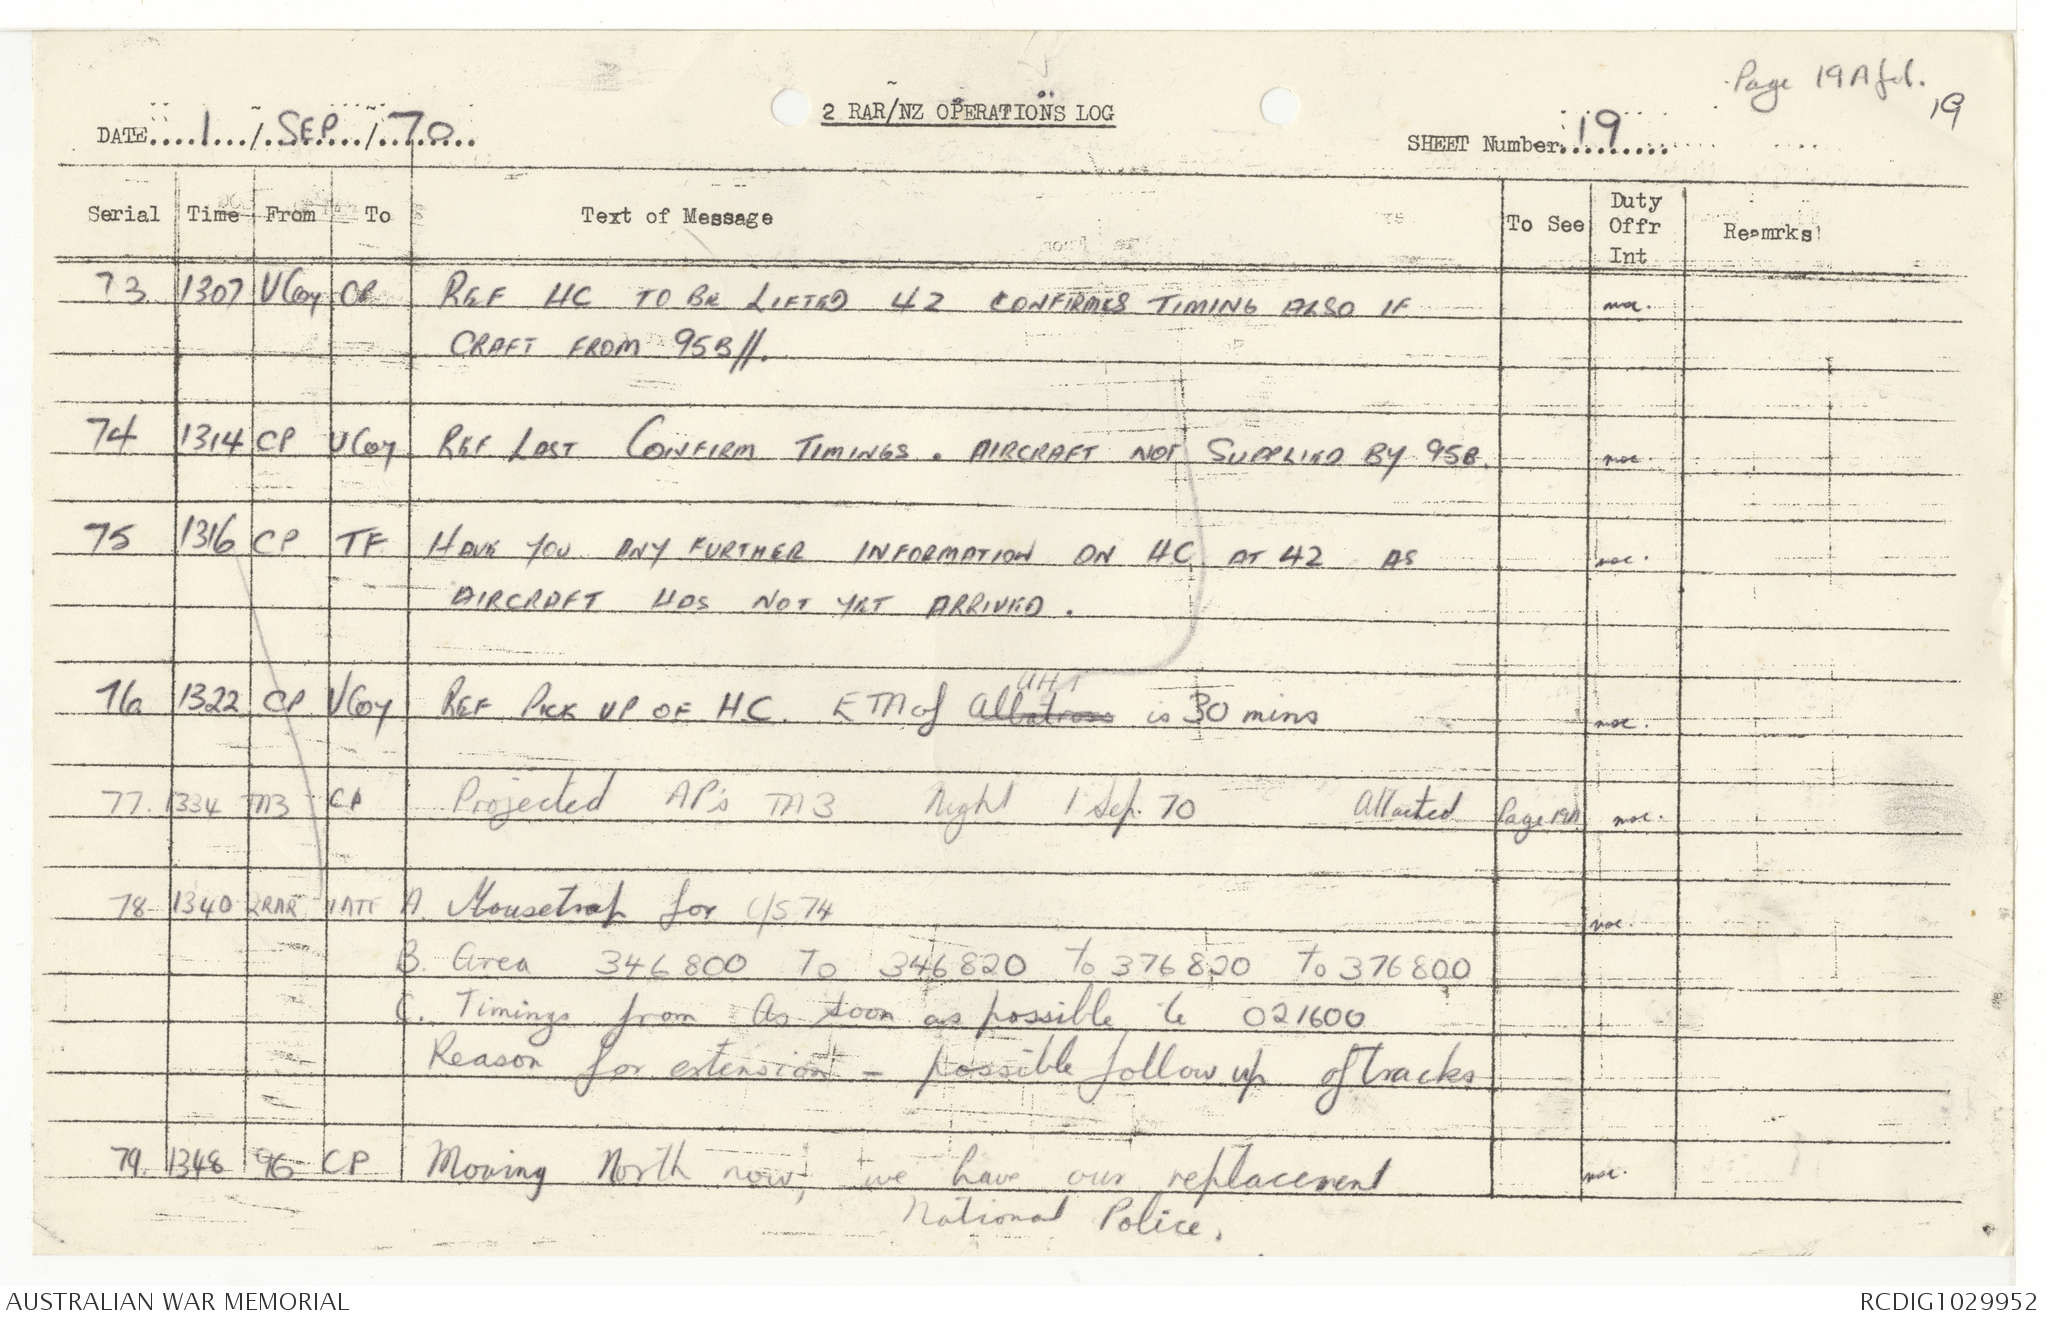 Page 19A fol.
19
2 RAR/NZ OPERATIONS LOG
DATE....1.../.SEP.../.70....
SHEET Number.19........
Serial Time From To Text of Message To See Duty Offr Int Reamrks
73 1307 VCoy CP REF HC TO BE LIFTED 42 CONFIRMES TIMING ALSO IF
CRAFT FROM 95B//.
74 1314 CP VCoy REF LAST CONFIRM TIMINGS. AIRCRAFT NOT SUPPLIED BY 95B.
75 1316 CP TF HAVE YOU ANY FURTHER INFORMATION ON HC AT 42 AS
AIRCRAFT HAS NOT YET ARRIVED.
76 1322 CP VCoy REF PICK UP OF HC. ETA of Albatross is 30 mins
77. 1334 CP Projected AP's Night 1 Sep. 70 Attached Page 19A
78 1340 2RAR 1ATF A. Mousetrap for C/S 74
B. Area 346800 To 346820 To 376820 To 376800
C. Timings from As soon as possible to 021600
Reason for extension - possible follow up of tracks
79. 1348 96 CP Moving North now, we have our replacement
National Police.
AUSTRALIAN WAR MEMORIAL
RCDIG1029952